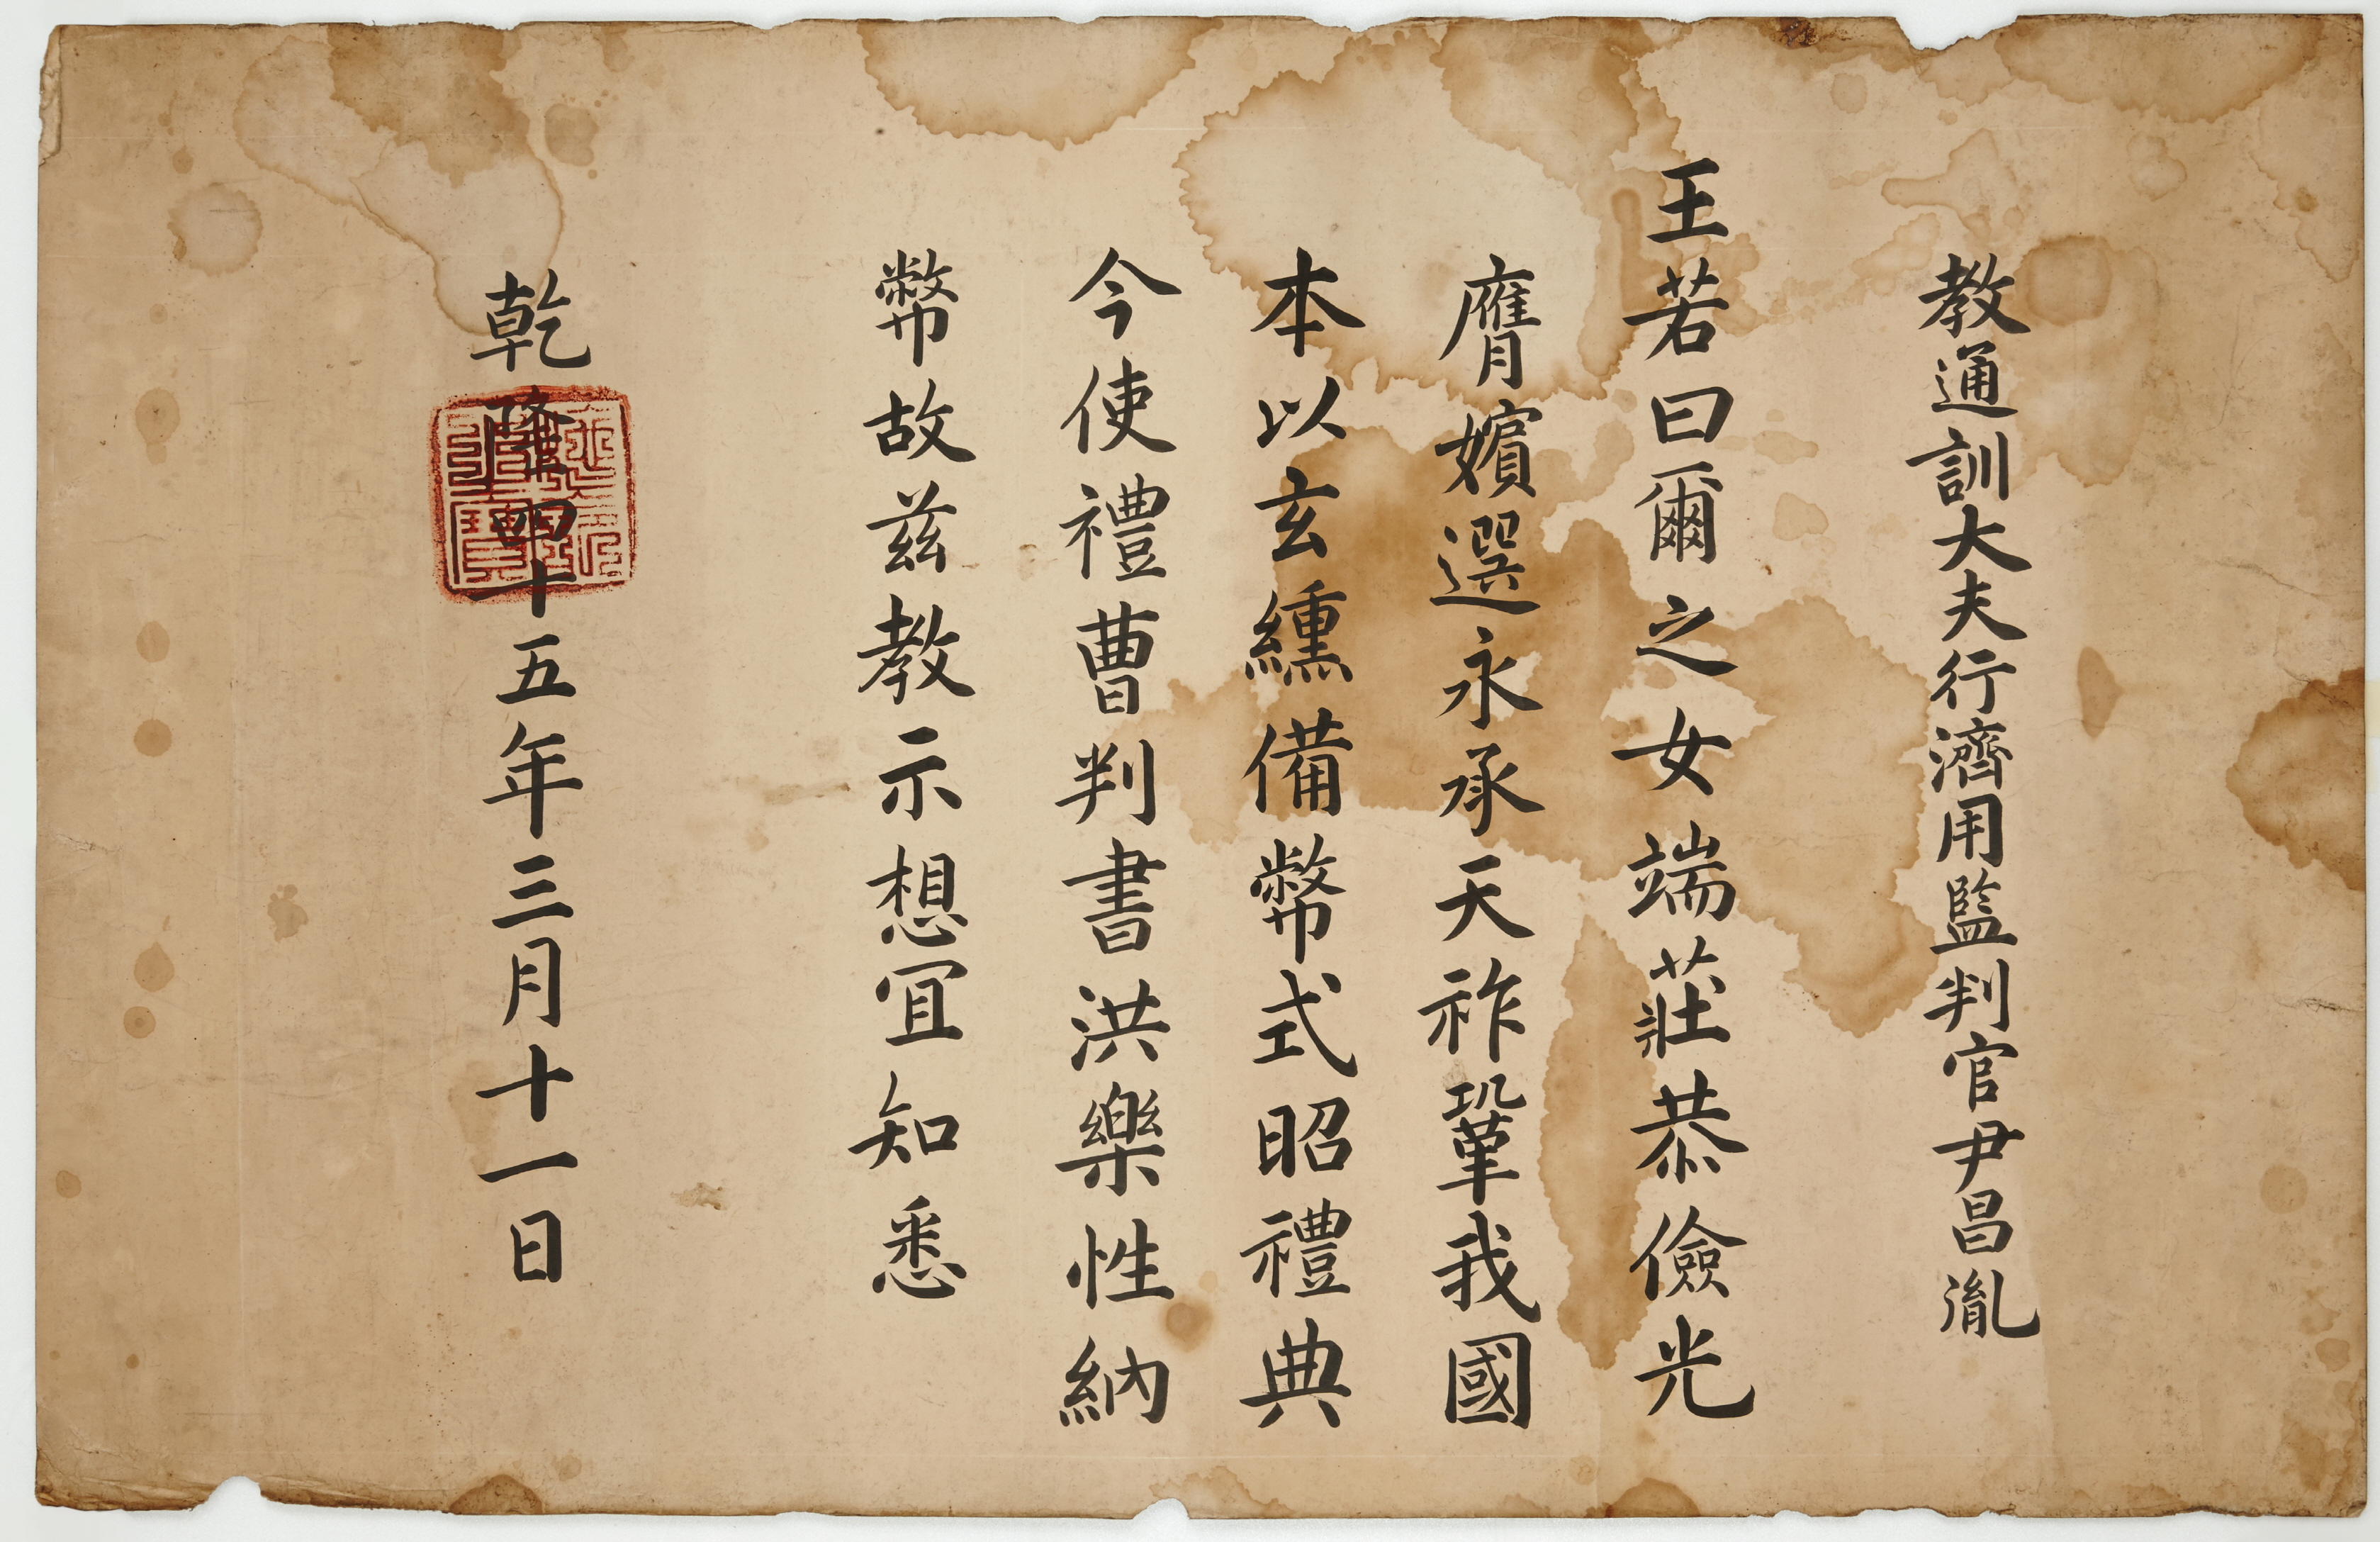 教通訓大夫行濟用監判官尹昌胤
王若曰爾之女端莊恭儉光
膺嬪選永承天祚鞏我國
本以玄纁備幣式昭禮典
今使禮曹判書洪樂性納
幣故茲教示想宜知悉
乾隆四十五年三月十一日